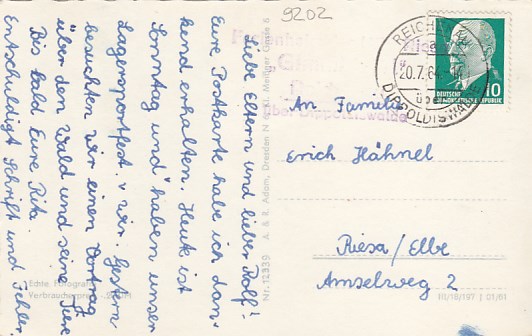 9202
Liebe Eltern und lieber Rolf!
Eure Postkarte habe ich dan-
kend erhalten. Heute ist
Sonntag und haben unser
Lagersportfest. v. wir. Gestern
besuchten wir einen Vortrag
über den Wald und seine Tiere
Bis bald Eure Rita.
Entschuldigt Schrift und Fehler
Echte Fotografie
Verbraucherpreis
Nr. 12339 A. & R. Adam, Dresden N 6, Meißner Gasse 6
über Dippoldiswalde
REICH
20.7.64
ÜBER
DIPPOLDISWALDE
DEUTSCHE
DEMOKRATISCHE REPUBLIK
10
An Familie
Erich Hähnel
Riesa/Elbe
Amselweg 2
III/18/197 J 01/61